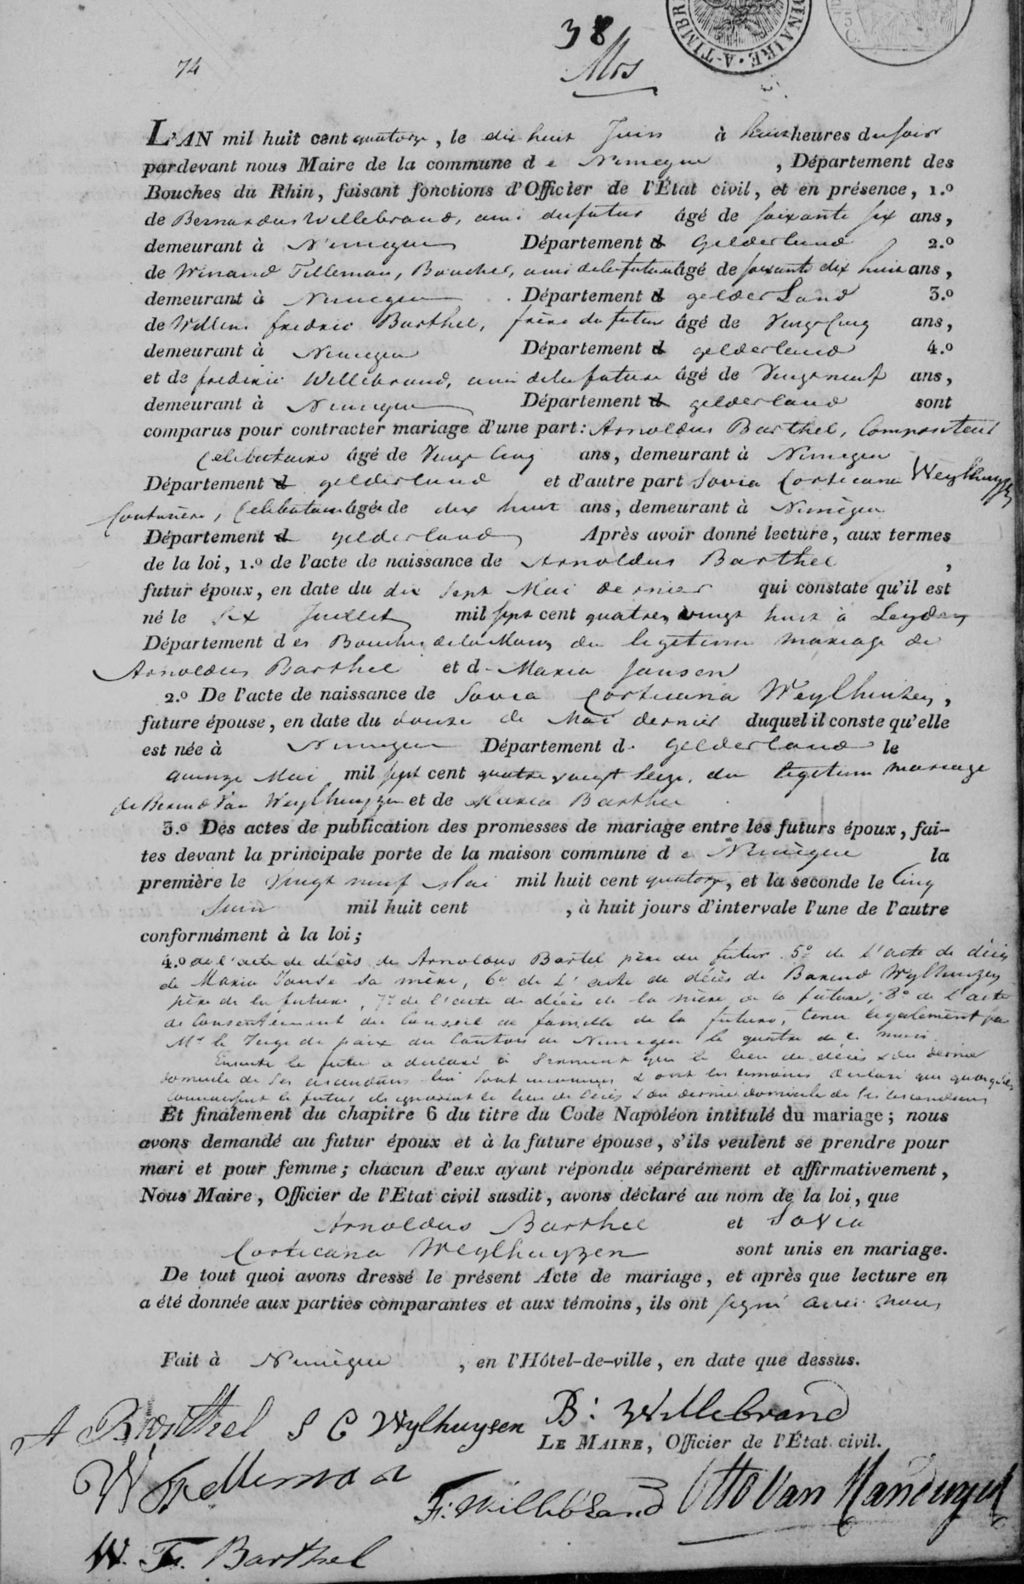 38
74
Mrs
A-TIMBR
DINAIRE
L'AN mil huit cent quatorze, le dix huit Juin à heures du soir
pardevant nous Maire de la commune d e Nimegue , Département des
Bouches du Rhin, faisant fonctions d'Officier de l'État civil, et en présence, 1.º
de Bernardus Willebrand, ami du futur âgé de soixante six ans,
demeurant à Nimegue Département d Gelderland 2.º
de Winand Tilleman, Boucher, ami de la future âgé de soixante dix huit ans,
demeurant à Nimegue . Département d gelderland 3.º
de Willem fredric Barthel, frère du futur âgé de Vingt Cinq ans,
demeurant à Nimegue Département d gelderland 4.º
et de frederic Willebrand, ami de la future âgé de Vingt neuf ans,
demeurant à Nimegue Département d gelderland sont
comparus pour contracter mariage d'une part: Arnoldus Barthel, Compositeur
Celibataire âgé de Vingt Cinq ans, demeurant à Nimegue
Département d gelderland et d'autre part Sovia Corticana Weylhuyzen
Couturière, Celibataire âgée de dix huit ans, demeurant à Nimègue
Département d gelderland Après avoir donné lecture, aux termes
de la loi, 1.º de l'acte de naissance de Arnoldus Barthel ,
futur époux, en date du dix Sept Mai dernier qui constate qu'il est
né le Six Juillet mil sept cent quatre vingt huit à Leyden
Département d es Bouches de la Meuse du legitime mariage de
Arnoldus Barthel et d Maria Jansen
2.º De l'acte de naissance de Sovia Corticana Weylhuizen ,
future épouse, en date du douze de Mai dernier duquel il conste qu'elle
est née à Nimegue Département d. Gelderland le
quinze Mai mil sept cent quatre vingt Seize, du legitime mariage
de Berend Van Weylhuyzen et de Maria Barthel
3.º Des actes de publication des promesses de mariage entre les futurs époux, fai-
tes devant la principale porte de la maison commune d e Nimègue la
première le Vingt neuf Mai mil huit cent quatorze, et la seconde le Cinq
Juin mil huit cent , à huit jours d'intervale l'une de l'autre
conformément à la loi;
4.º de l'acte de décès de Arnoldus Bartel père du futur 5º de l'acte de décès
de Maria Janse sa mère, 6º de l'acte de décès de Barend Wylhuyzen
père de la future, 7º de l'acte de décès de la mère de la future, 8º de l'acte
de Consentement du Conseil de famille de la future, tenu legalement par
Mr le Juge de paix du Canton de Nimegue le quatre de ce mois.
Ensuite le futur a declaré à Serment que le lieu de décès & du dernier
domicile de ses ascendans lui sont inconnus & ont les temoins declaré que quoiqu'ils
connoissent le futur ils ignorent le lieu de décès & du dernier domicile de ses ascendans
Et finalement du chapitre 6 du titre du Code Napoléon intitulé du mariage; nous
avons demandé au futur époux et à la future épouse, s'ils veulent se prendre pour
mari et pour femme; chacun d'eux ayant répondu séparément et affirmativement,
Nous Maire, Officier de l'Etat civil susdit, avons déclaré au nom de la loi, que
Arnoldus Barthel et Sovia
Corticana Weylhuyzen sont unis en mariage.
De tout quoi avons dressé le présent Acte de mariage, et après que lecture en
a été donnée aux parties comparantes et aux témoins, ils ont signé avec nous
Fait à Nimègue , en l'Hôtel-de-ville, en date que dessus.
A Barthel S C Wylhuysen B: Willebrand
LE MAIRE, Officier de l'État civil.
W Tilleman F: Willebrand Otto Van
W. Fr. Barthel